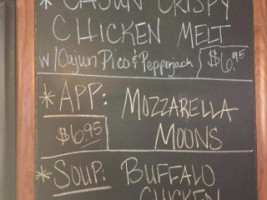 CAJUN CRISPY
CHICKEN MELT
w/ Cajun Pico & Pepperjack $6.95
* APP: MOZZARELLA
$6.95 MOONS
* SOUP: BUFFALO
CHICKEN